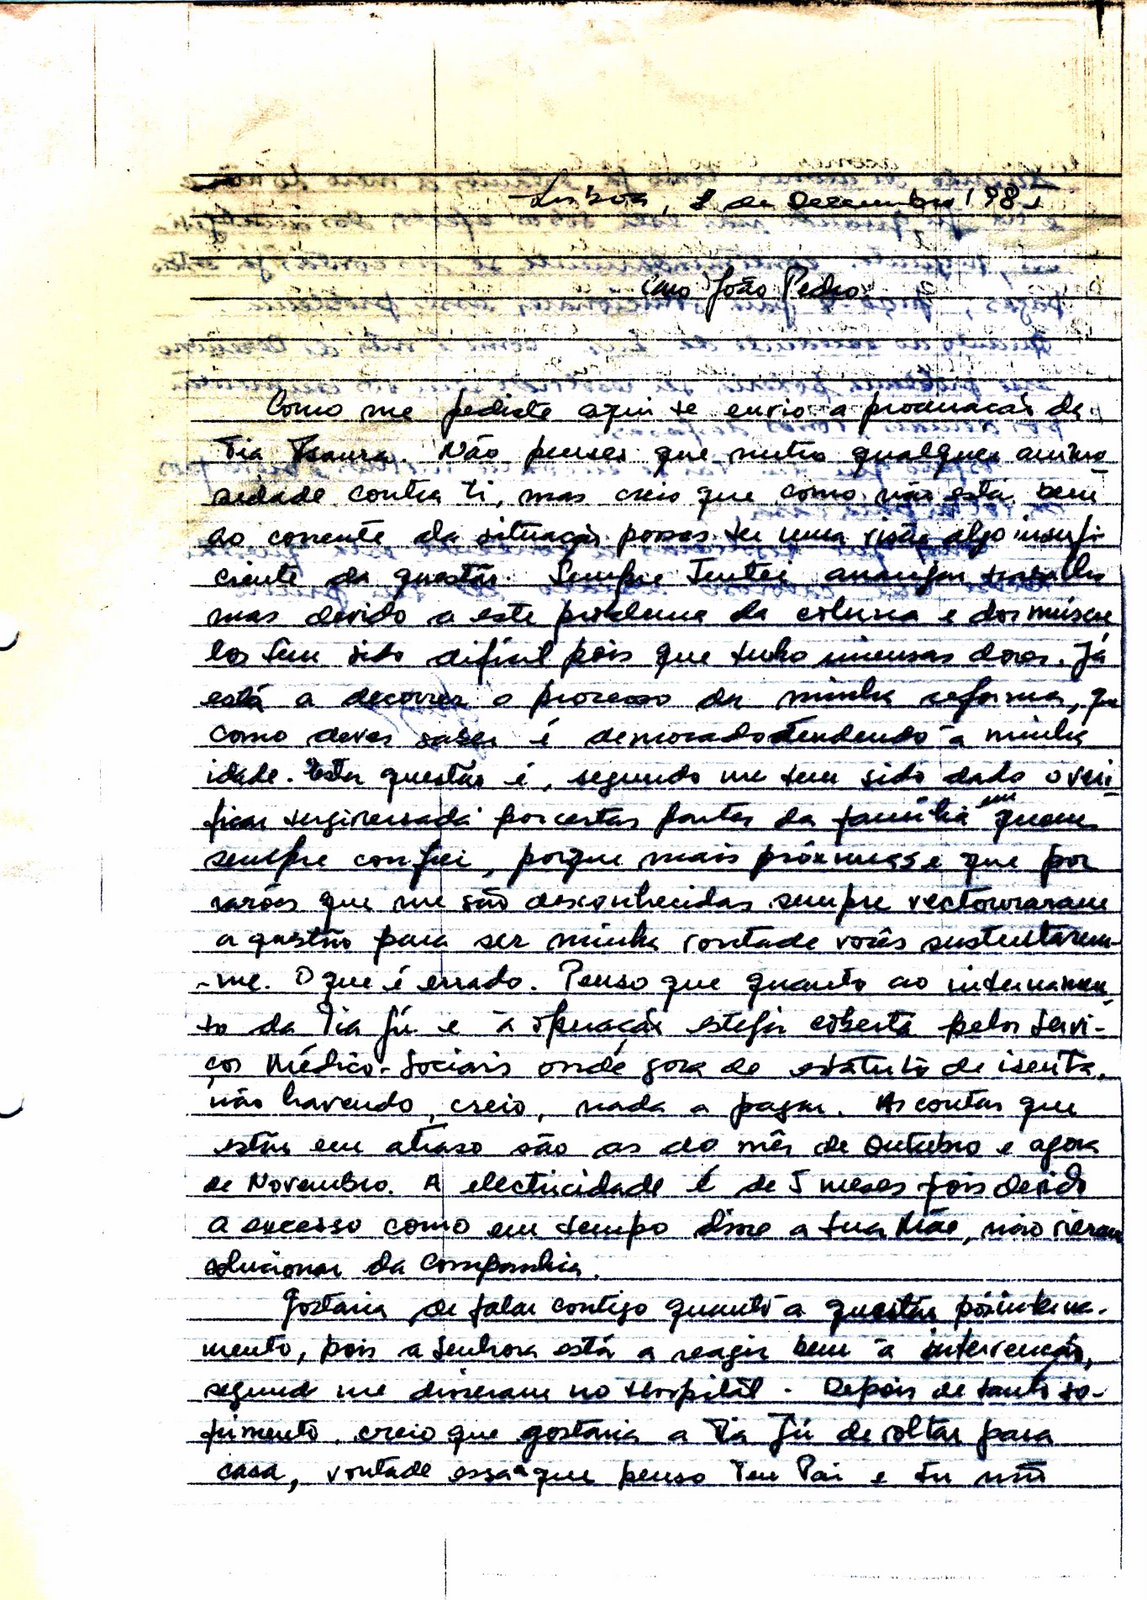 Lisboa, 2 de Dezembro 1981
Caro João Pedro
Como me pediste aqui te envio a procuração da
Tia Isaura. Não penses que nutro qualquer animo
sidade contra ti, mas creio que como não está bem
ao corrente da situação possas ter uma visão algo insufi
ciente da questão. Sempre Tentei arranjar trabalho
mas devido a este problema da coluna e dos múscu
los tem sido difícil pois que tenho imensas dores. Já
está a decorrer o processo da minha reforma, que
como deves saber é demorado atendendo à minha
idade. Esta questão é, segundo me tem sido dado o veri-
ficar tergiversada por certas partes da família em quem
sempre confiei, porque mais próximas e que por
razões que me são desconhecidas sempre
a questão para ser minha vontade vocês sustentarem-
-me. O que é errado. Penso que quanto ao internamen-
to da Tia Jú e à operação esteja coberta pelos Servi-
ços Médico-Sociais onde goza de estatuto de isenta,
não havendo, creio, nada a pagar. As contas que
estão em atraso são as do mês de Outubro e agora
de Novembro. A electricidade é de 5 meses pois devido
a excesso como em tempo disse a tua Mãe, não vieram
solucionar da Companhia.
Gostaria de falar contigo quanto a questão pósinterna-
mento, pois a Senhora está a reagir bem à intervenção,
segundo me disseram no Hospital. Depois de tanto so-
frimento, creio que gostaria a Tia Jú de voltar para
casa, vontade essa que penso Teu Pai e tu não